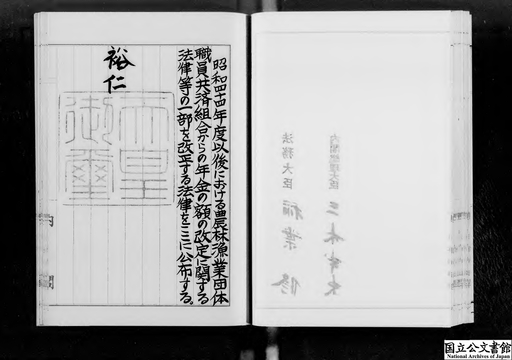 昭和四十四年度以後における農林漁業団体
職員共済組合からの年金の額の改定に関する
法律等の一部を改正する法律をここに公布する。
裕仁
天皇
御璽
内閣総理大臣 三木武夫
法務大臣 稲葉修
国立公文書館
National Archives of Japan